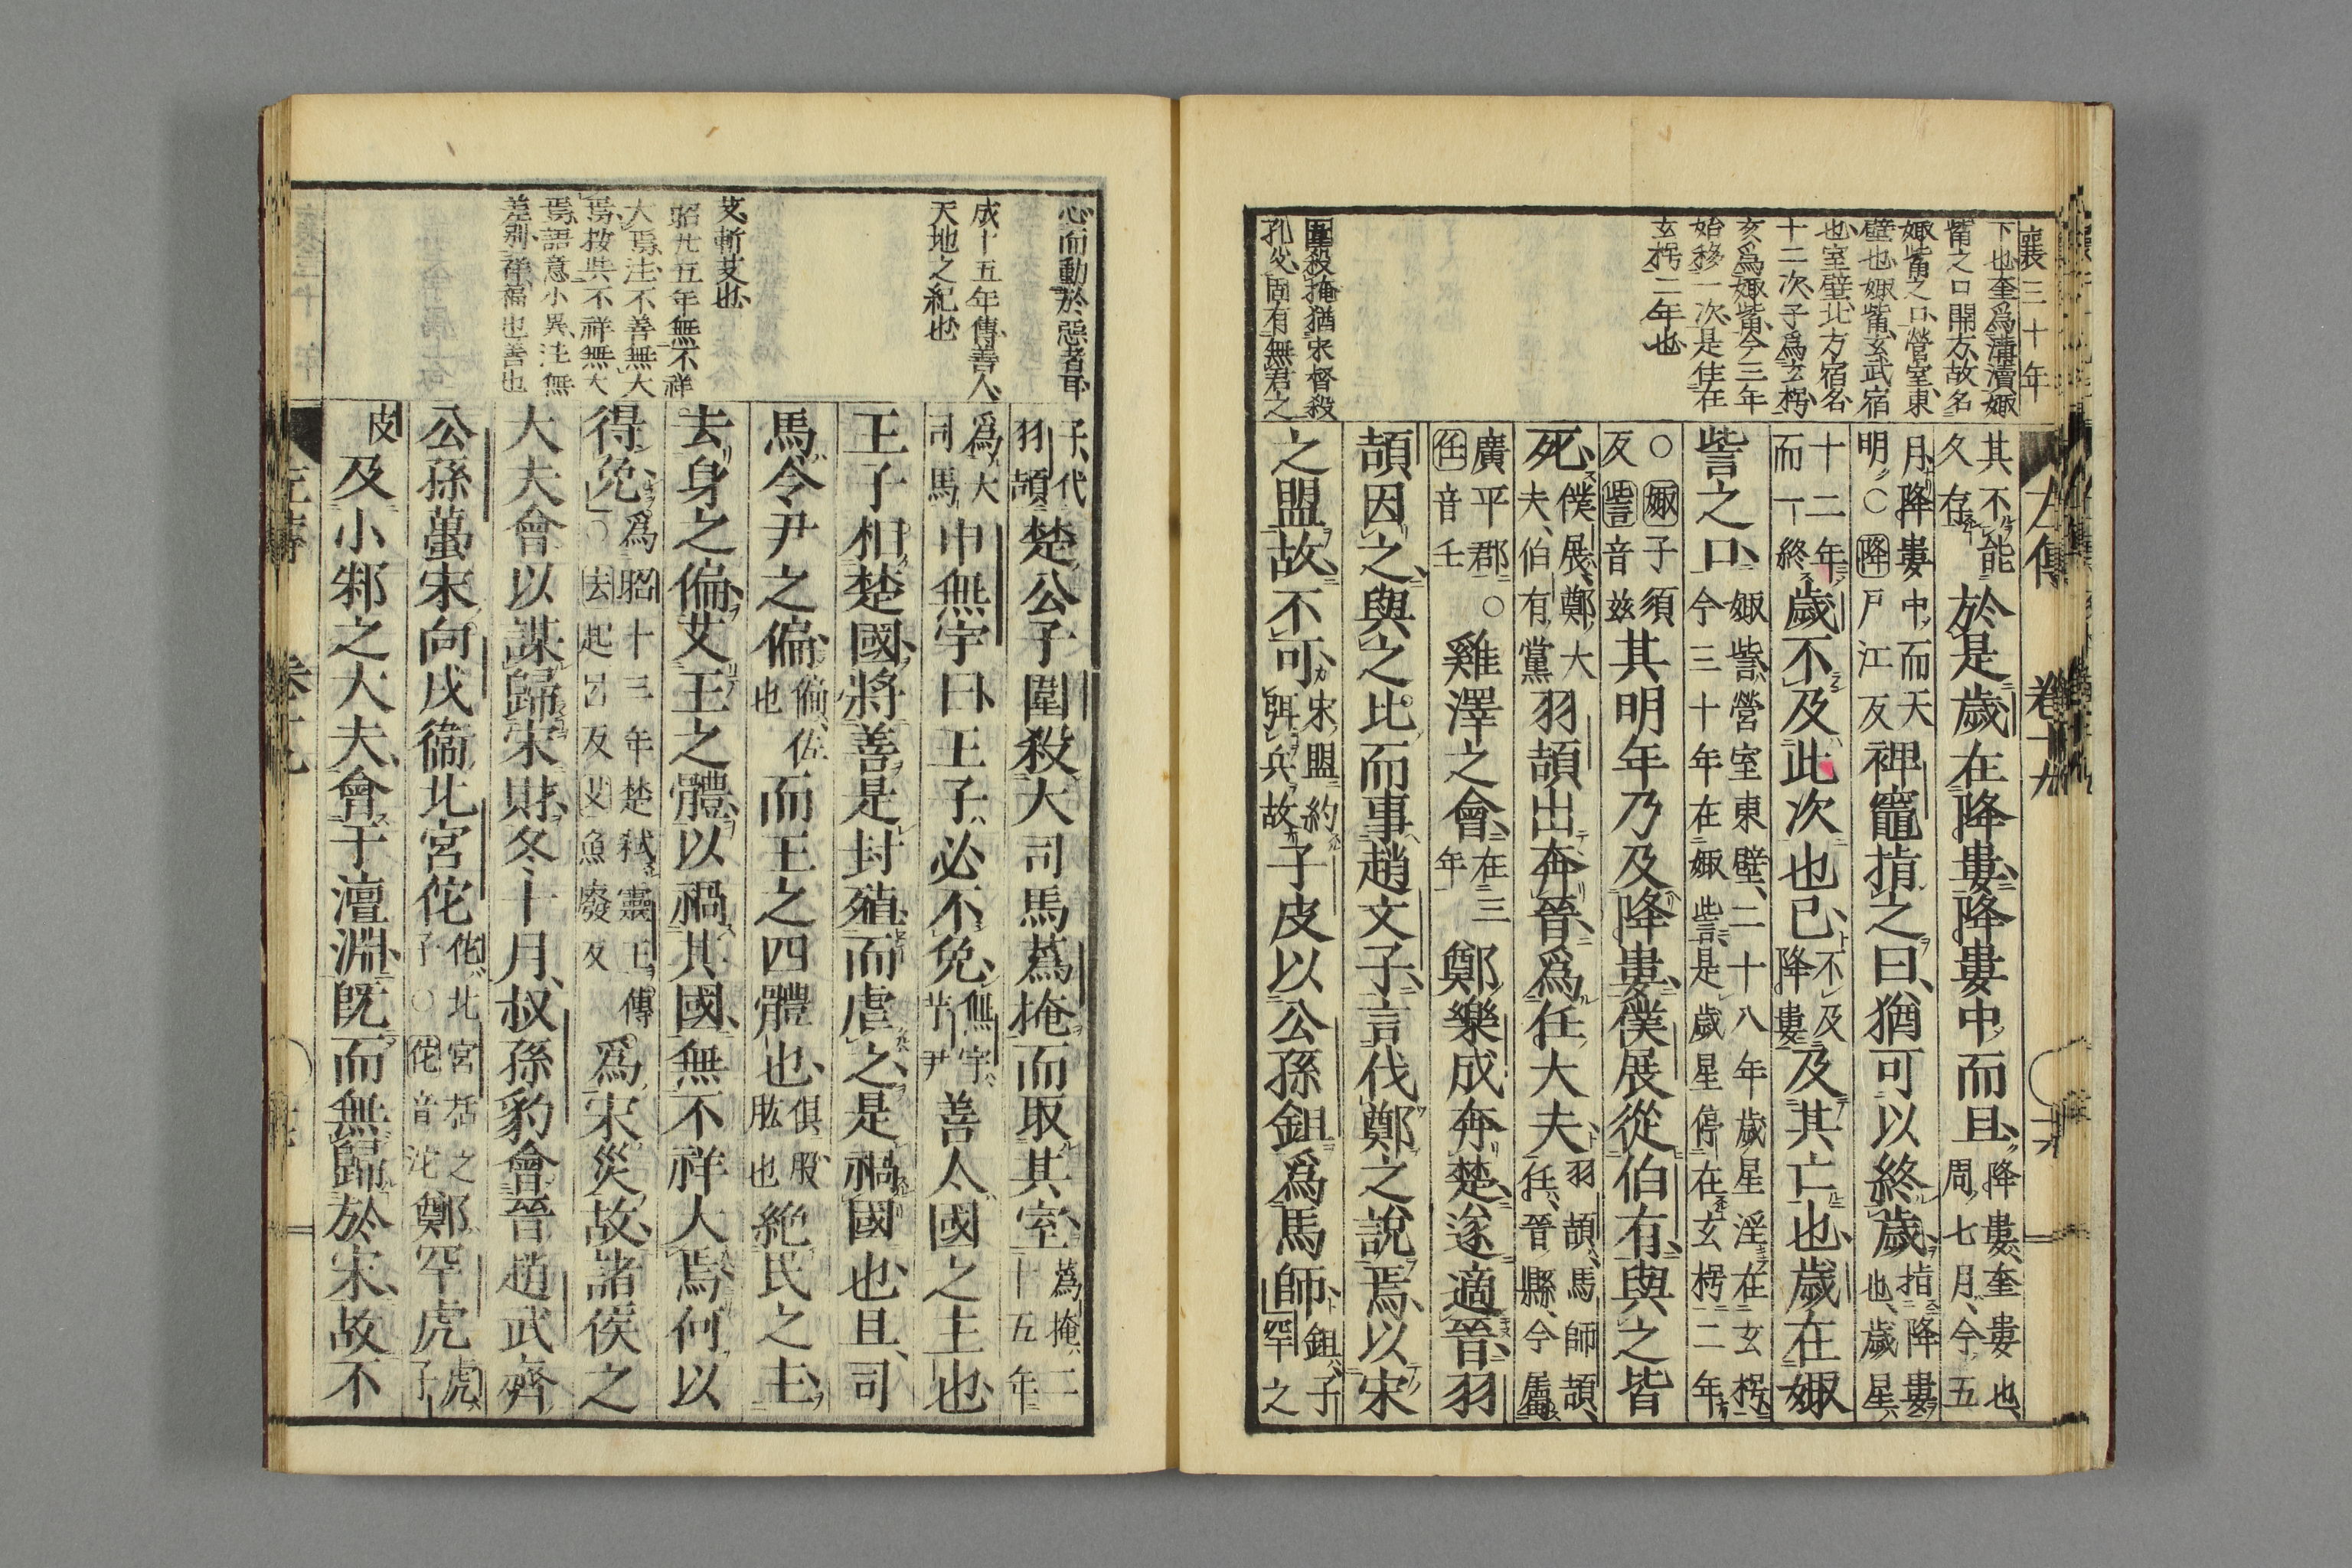 襄三十年
下也奎爲溝瀆娵
觜之口開方故名
娵觜之口營室東
壁也娵觜玄武宿
也室壁北方宿名
十二次子爲玄枵
亥爲娵觜今三年
始移一次是佳在
玄枵二年也
圍殺掩猶宋督殺
孔父固有無君之
左傳 卷十九
其不能久存於是歲在降婁降婁中而且降婁奎婁也周七月今五
月降婁中而天明○降戸江反裨竈指之曰猶可以終歲指降婁也歲星
十二年而一終歲不及此次也已不及降婁及其亡也歲在娵
訾之口娵訾營室東壁二十八年歲星淫在玄枵今三十年在娵訾是歲星停在玄枵二年
○娵子須反訾音玆其明年乃及降婁僕展從伯有與之皆
死僕展鄭大夫伯有黨羽頡出奔晉爲任大夫羽頡馬師頡任晉縣今屬
廣平郡○任音壬雞澤之會在三年鄭樂成奔楚遂適晉羽
頡因之與之比而事趙文子言伐鄭之說焉以宋
之盟故不可宋盟約弭兵故子皮以公孫鉏爲馬師鉏子罕之
心而動於惡者耳
成十五年傳善人
天地之紀也
艾斬艾也
昭廿五年無不祥
大焉注不善無大
焉按共不祥無大
焉語意小異注無
差別祥福也善也
子代羽頡楚公子圍殺大司馬蔿掩而取其室蔿掩二十五年
爲大司馬申無宇曰王子必不免無宇芋尹善人國之主也
王子相楚國將善是封殖而虐之是禍國也且司
馬令尹之偏偏佐也而王之四體也俱股肱也絶民之主
去身之偏艾王之體以禍其國無不祥大焉何以
得免爲昭十三年楚弑靈王傳○去起呂反艾魚廢反爲宋災故諸侯之
大夫會以謀歸宋財冬十月叔孫豹會晉趙武齊
公孫蠆宋向戌衞北宮佗佗北宮括之子○佗音沱鄭罕虎虎子
皮及小邾之大夫會于澶淵既而無歸於宋故不
左傳 卷十九